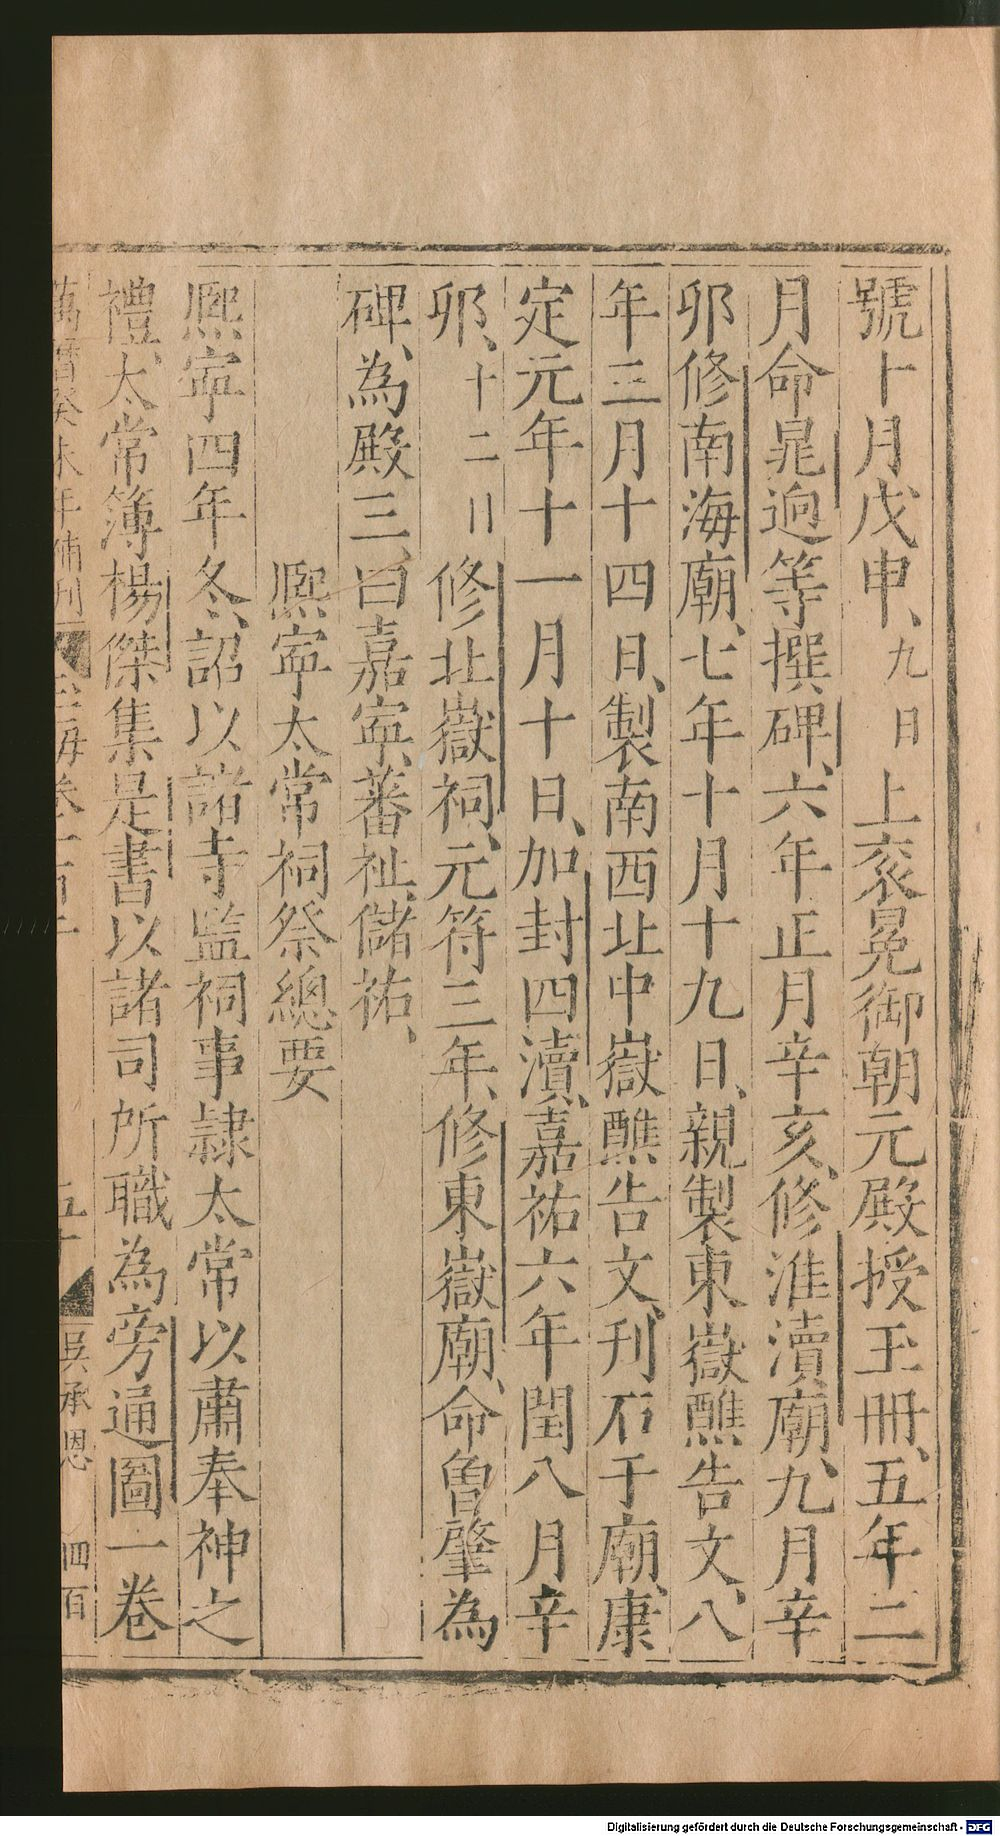 號十月戊申、九日上衮冕御朝元殿授玉冊、五年二
月命晁逈等撰碑、六年正月辛亥、修淮瀆廟、九月辛
卯修南海廟、七年十月十九日、親製東嶽醮告文、八
年三月十四日、製南西北中嶽醮告文、刋石于廟、康
定元年十一月十日、加封四瀆、嘉祐六年閏八月辛
卯、十二日修北嶽祠、元符三年、修東嶽廟、命曾肇為
碑、為殿三、曰嘉寜、蕃祉、儲祐、
熈寜太常祠祭總要
熈寜四年冬、詔以諸寺監祠事隷太常以肅奉神之
禮、太常簿楊傑集是書以諸司所職為旁通圖一卷
萬曆癸未年補刋 玉海卷一百二 五十 吳承恩 四百
Digitalisierung gefördert durch die Deutsche Forschungsgemeinschaft - DFG